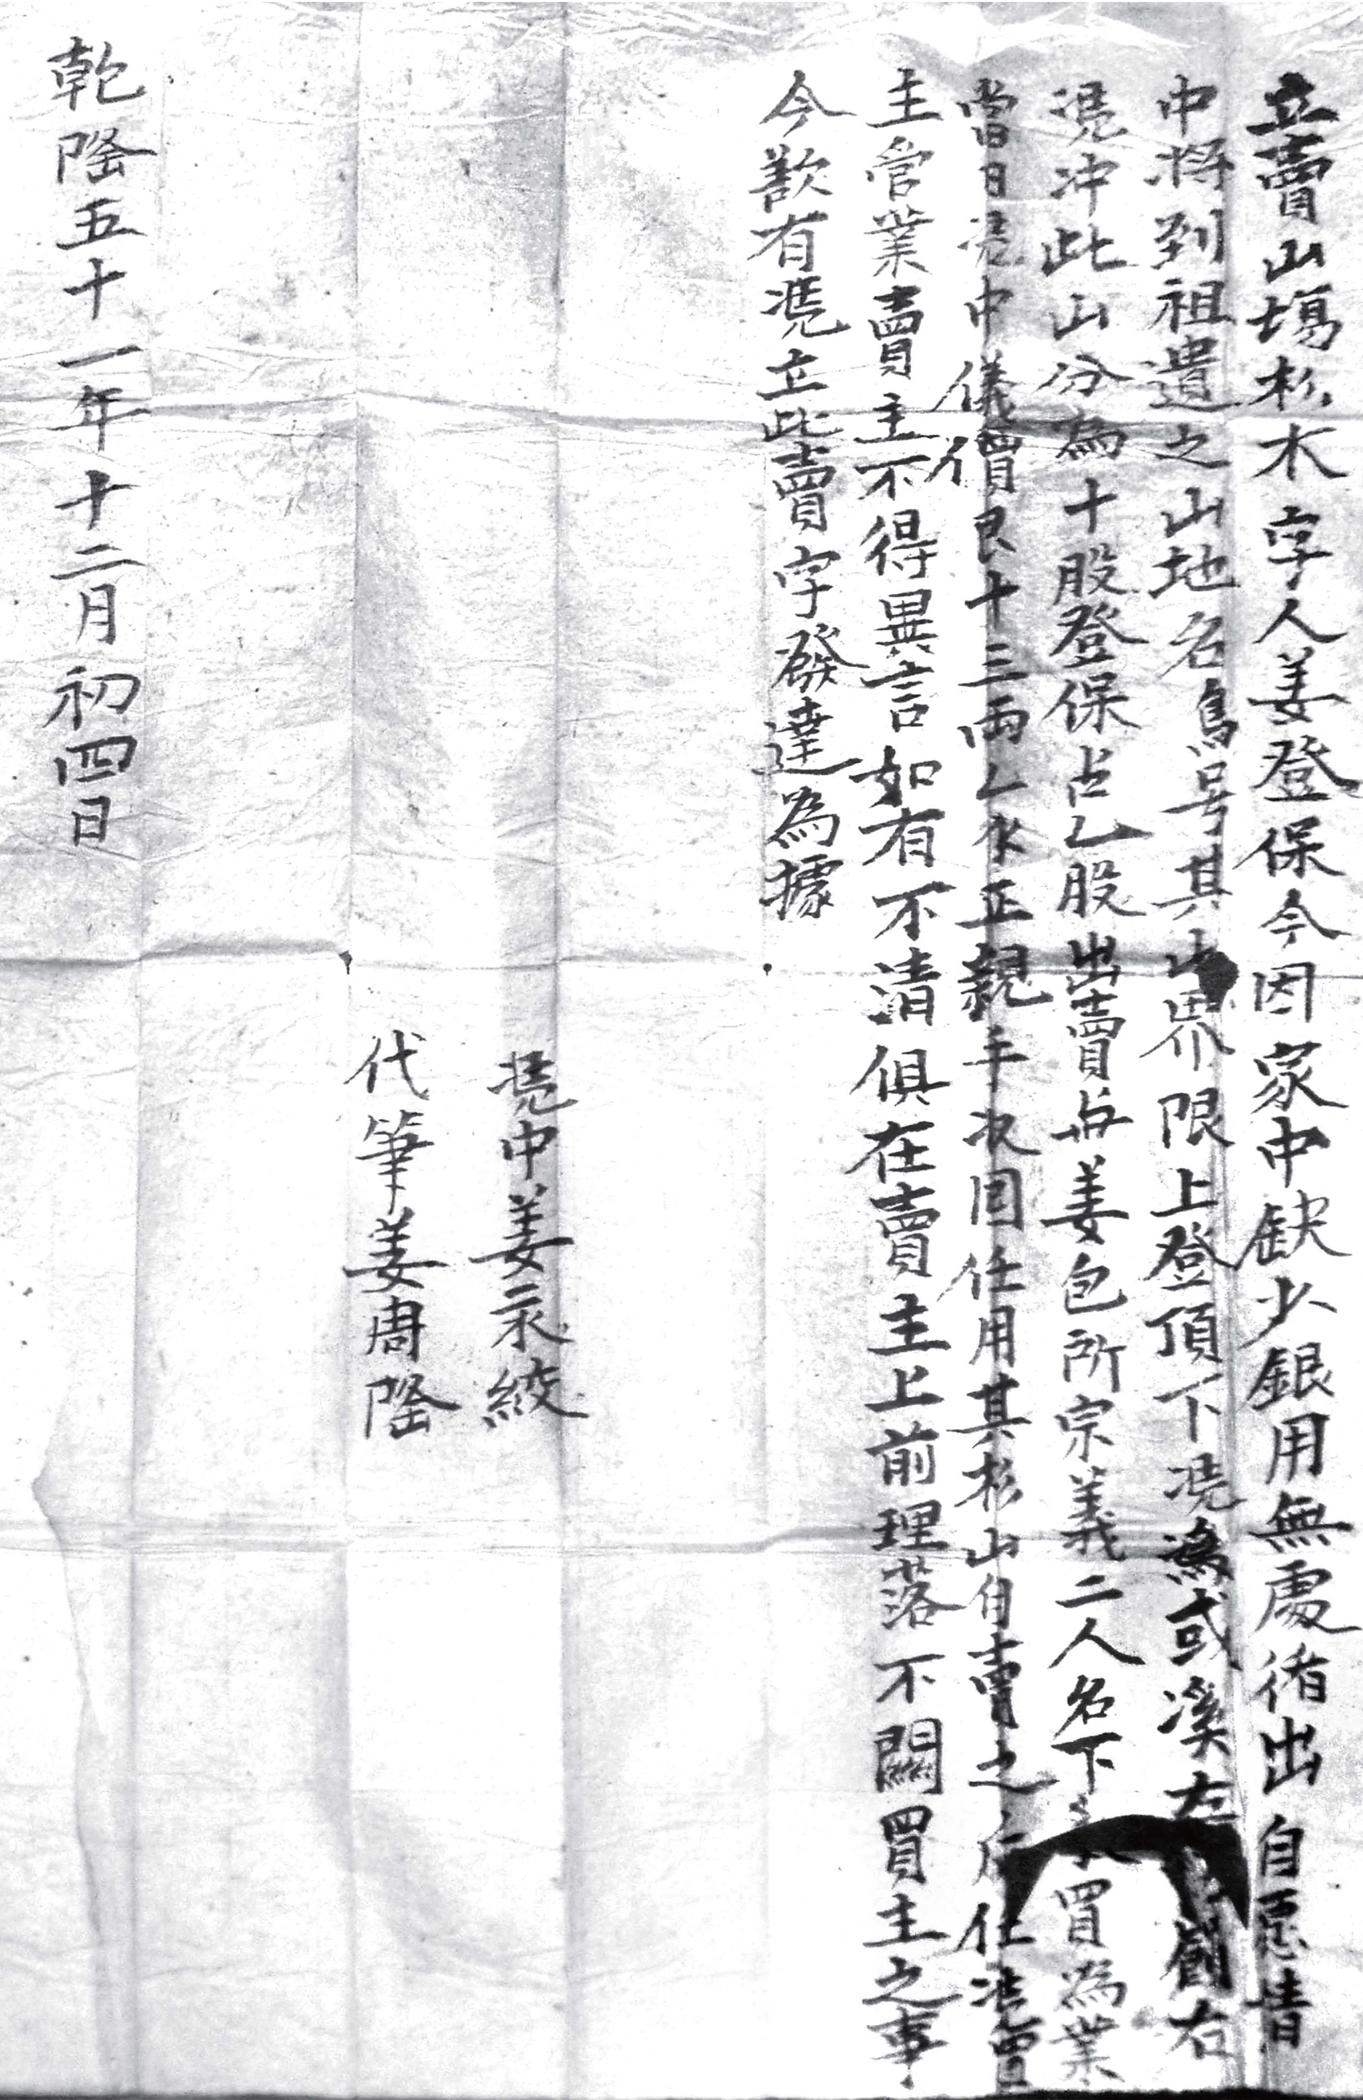 立賣山塲杉木字人姜登保今因家中缺少銀用無處偹出自愿請
中将到祖遺之山地名鳥号其山界限上登頂下凴為或溪左凴嶺右
凴冲此山分為十股登保占乙股出賣与姜包所宗義二人名下承買為業
當日凴中儀價艮十三兩乙錢正親手收囬任用其杉山自賣之后任凴買
主管業賣主不得異言如有不清俱在賣主上前理落不關買主之事
今歎有凴立此賣字發達為據
凴中姜永絞
代筆姜周隆
乾隆五十一年十二月初四日